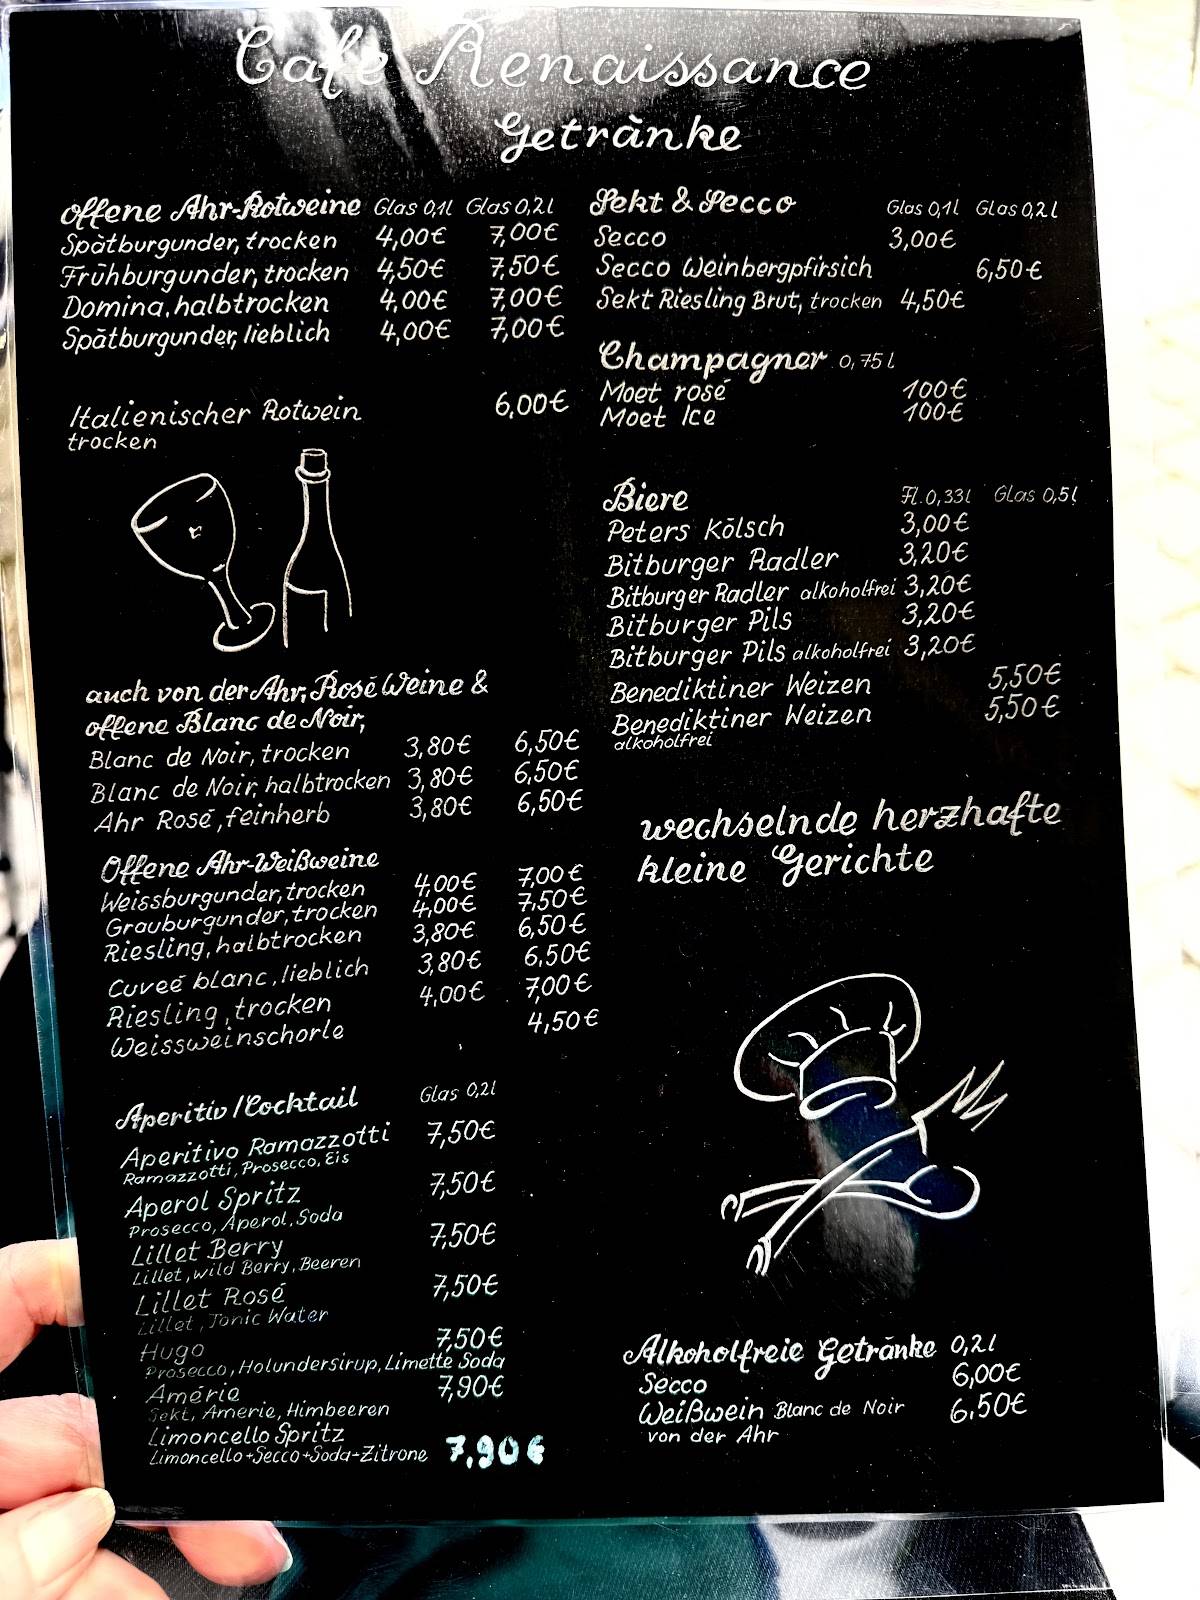 Café Renaissance
Getränke
offene Ahr-Rotweine Glas 0,1l Glas 0,2l
Spätburgunder, trocken 4,00€ 7,00€
Frühburgunder, trocken 4,50€ 7,50€
Domina, halbtrocken 4,00€ 7,00€
Spätburgunder, lieblich 4,00€ 7,00€
Italienischer Rotwein 6,00€
trocken
auch von der Ahr, Rosé Weine &
offene Blanc de Noir,
Blanc de Noir, trocken 3,80€ 6,50€
Blanc de Noir, halbtrocken 3,80€ 6,50€
Ahr Rosé, feinherb 3,80€ 6,50€
Offene Ahr-Weißweine
Weissburgunder, trocken 4,00€ 7,00€
Grauburgunder, trocken 4,00€ 7,50€
Riesling, halbtrocken 3,80€ 6,50€
Cuveé blanc, lieblich 3,80€ 6,50€
Riesling, trocken 4,00€ 7,00€
Weissweinschorle 4,50€
Aperitiv/Cocktail Glas 0,2l
Aperitivo Ramazzotti 7,50€
Ramazzotti, Prosecco, Eis
Aperol Spritz 7,50€
Prosecco, Aperol, Soda
Lillet Berry 7,50€
Lillet, wild Berry, Beeren
Lillet Rosé 7,50€
Lillet, Tonic Water
Hugo 7,50€
Prosecco, Holundersirup, Limette Soda
Amérie 7,90€
Sekt, Amerie, Himbeeren
Limoncello Spritz
Limoncello+Secco+Soda-Zitrone 7,90€
Sekt & Secco Glas 0,1l Glas 0,2l
Secco 3,00€
Secco Weinbergpfirsich 6,50€
Sekt Riesling Brut, trocken 4,50€
Champagner 0,75l
Moet rosé 100€
Moet Ice 100€
Biere Fl. 0,33l Glas 0,5l
Peters Kölsch 3,00€
Bitburger Radler 3,20€
Bitburger Radler alkoholfrei 3,20€
Bitburger Pils 3,20€
Bitburger Pils alkoholfrei 3,20€
Benediktiner Weizen 5,50€
Benediktiner Weizen 5,50€
alkoholfrei
wechselnde herzhafte
kleine Gerichte
Alkoholfreie Getränke 0,2l
Secco 6,00€
Weißwein Blanc de Noir 6,50€
von der Ahr